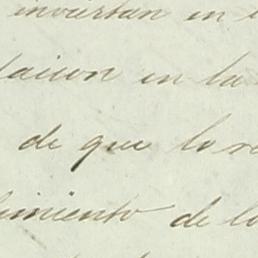 inviertan en
en la
de que los
imiento de lo